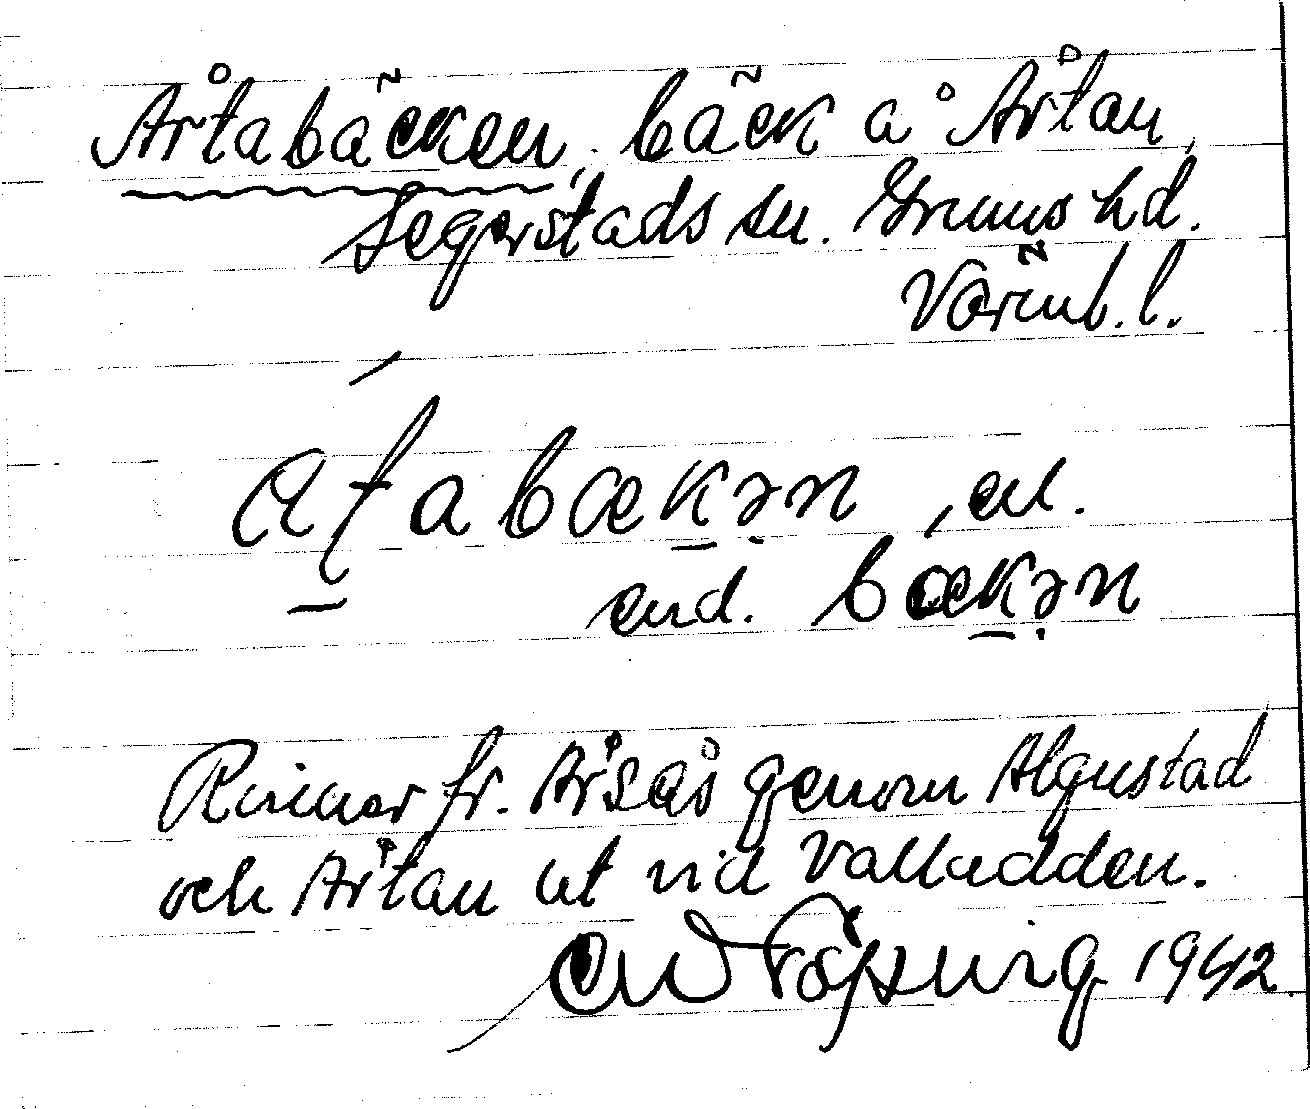 Årtabäcken, bäck å Årtan,
Segerstads sn. Grums hd.
Värml. l.
en.
end. bækən
Rinner fr. Årsås genom Algustad
och Årtan ut vid Valladden.
1942